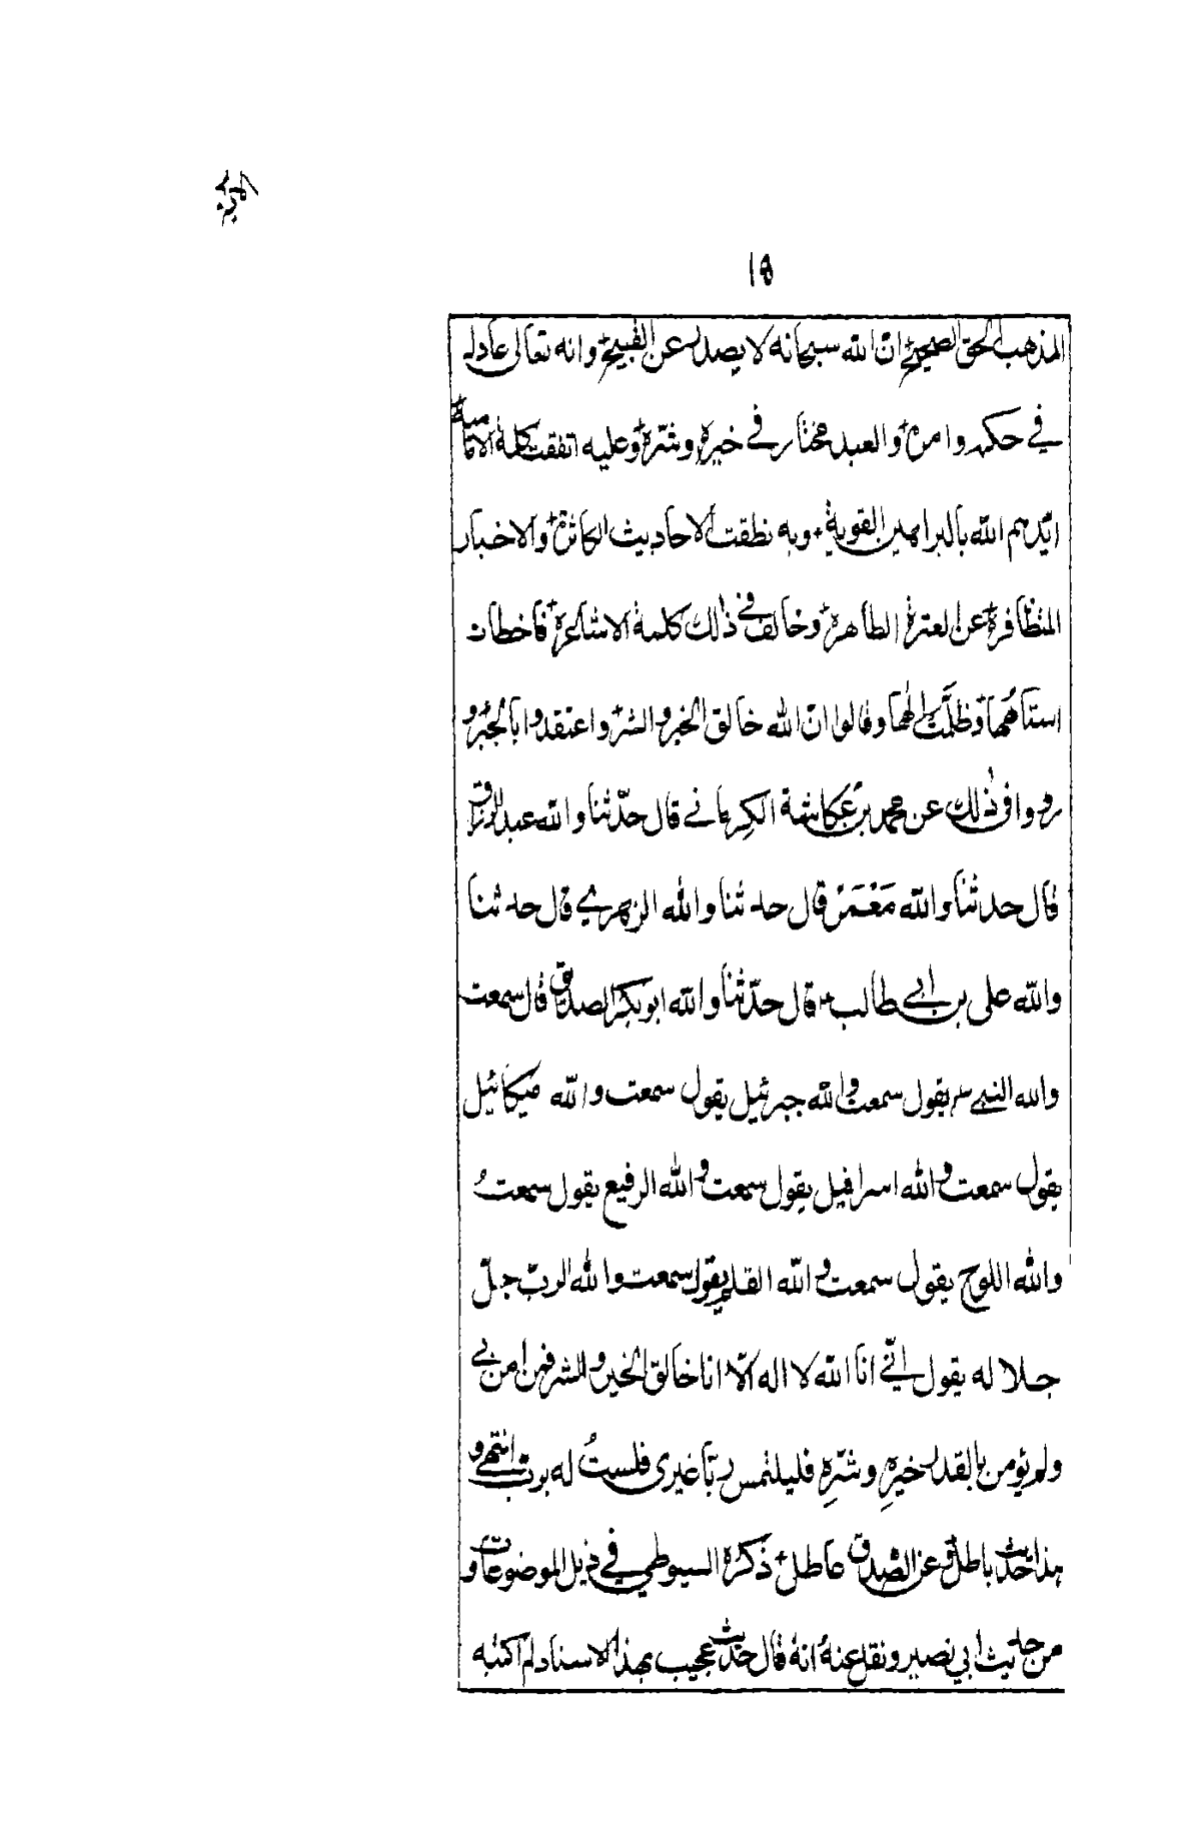 ١٥
المذهب الحق الصحیح ان الله سبحانه لا یصدر عن القبیح وانه تعالی عادل
في حکمه وامره والعبد مختار في خیره وشره وعلیه اتفقت کلمة الامامیة
ایّدهم الله بالبراهین القویة وبه نطقت الاحادیث الکاثرة والاخبار
المتظافرة عن العترة الطاهرة وخالف في ذلك کلمة الاشاعرة فاخطات
استاههما وظلّت الٰهها وقالوا انّ الله خالق الخیر والشر واعتقدوا بالجبر و
رووا في ذلك عن محمد بن عکاشة الکرماني قال حدّثنا والله عبد الرزاق
قال حدثنا والله مَعْمَرٌ قال حدثنا والله الزهري قال حدثنا
والله علی بن ابي طالب قال حدّثنا والله ابو بکر الصدیق قال سمعت
والله النبي یقول سمعت والله جبرئیل یقول سمعت والله میکائیل
یقول سمعت والله اسرافیل یقول سمعت والله الرفیع یقول سمعتُ
والله اللوح یقول سمعت والله القلم یقول سمعت والله الربّ جلّ
جلاله یقول انّي انا الله لا اله الّا انا خالق الخیر والشر فمن امن بي
ولم یؤمن بالقدر خیرِه وشرّهِ فلیلتمس ربّا غیری فلستُ له برب انتهی و
هذا حدیث باطل وعن الصدق عاطل ذکره السیوطي في ذیل الموضوعات و
من حدیث ابي نصیر ونقل عنه انهُ قال حدیث عجیب بهذا الاسناد لم اکتبه